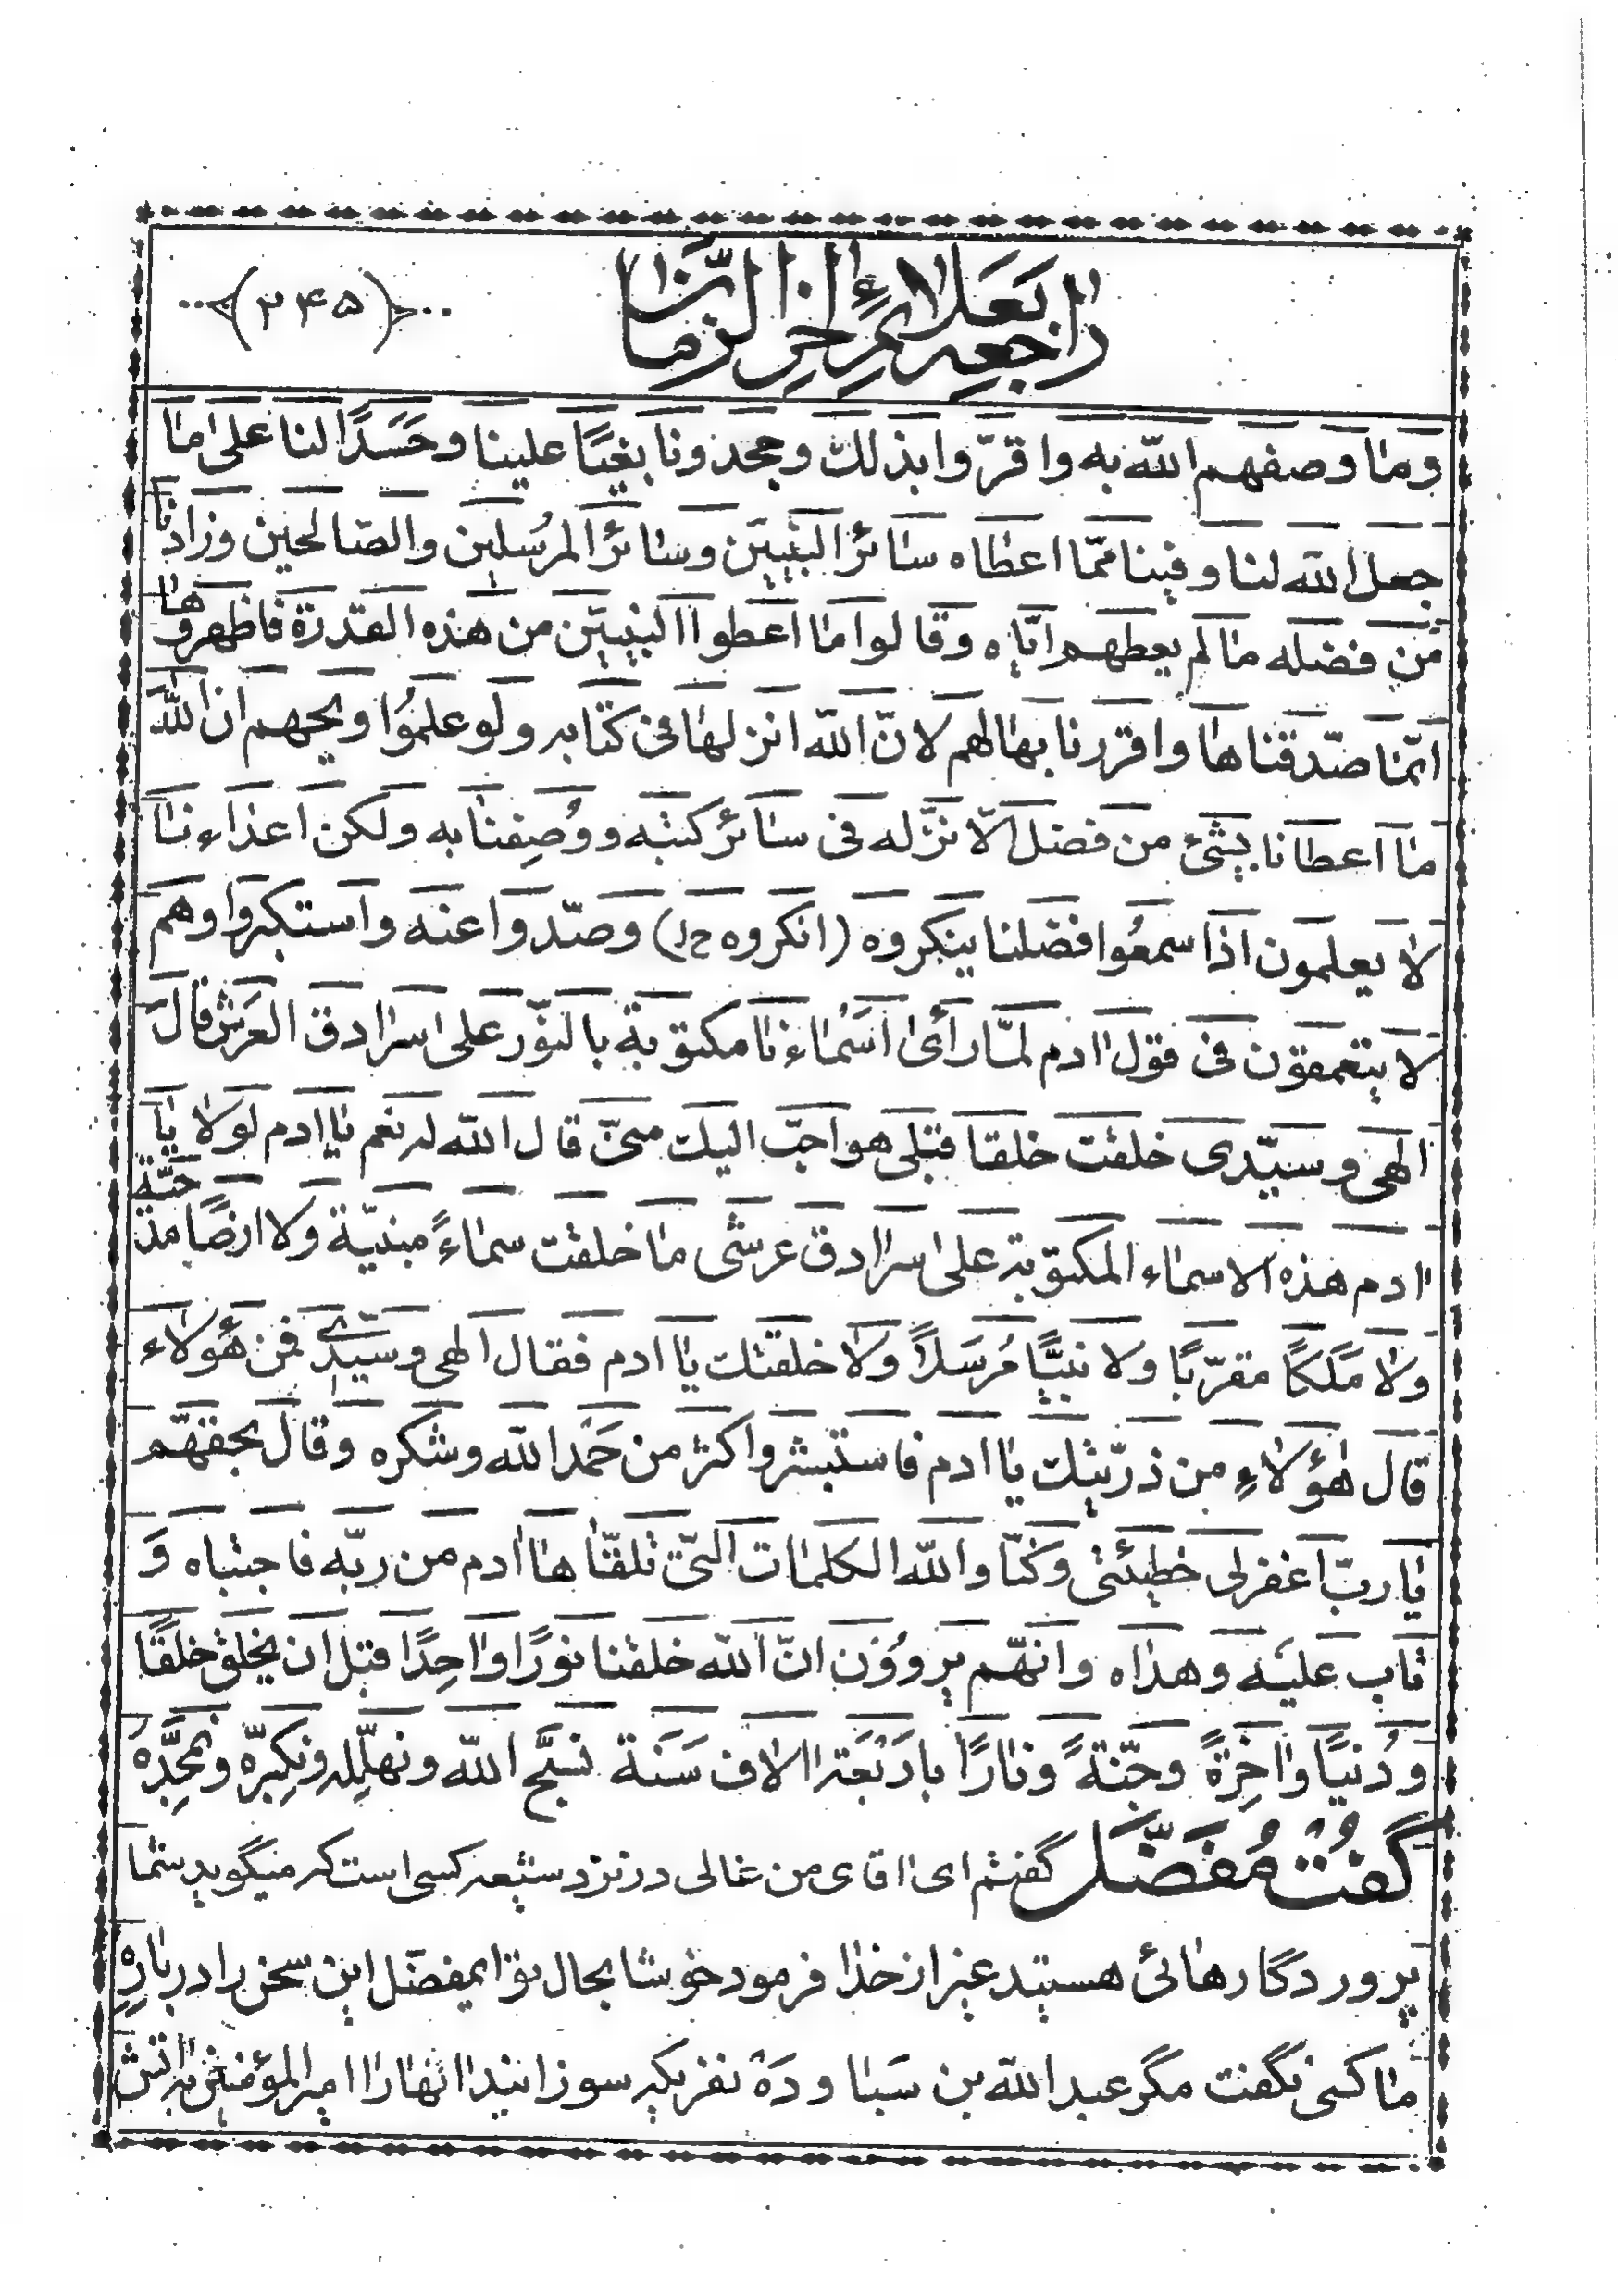 راجعه بعلائم اخر الزمان
﴿۲۴۵﴾
وما وصفهم الله به واقرّوا بذلك وجحدونا بغيًا علينا وحَسَدًا لنا على ما
جعل الله لنا وفينا ممّا اعطاه سائر النبيين وسائر المرُسلين والصّالحين وزادنا
من فضله ما لم يعطهم ايّاه وقالوا ما اعطوا النبيين من هذه القدرة فاظهروها
انّما صدّقناها واقررنا بها لهم لانّ الله انزلها فى كتابه ولو علموُا ويحهم ان الله
ما اعطانا بشئ من فضل الّا نزّله فى سائر كتبه ووُصِفنا به ولكن اعداءنا
لا يعلمون اذا سمعُوا فضلنا ينكروه (انكروه خ‌ل) وصدّوا عنه واستكبروا وهم
لا يتعمقون فى قول ادم لمّا رأى اَسْماءنا مكتوبة بالنّور على سرادق العَرش قال
الهى وسيّدى خلقت خلقا قبلى هو احبّ اليك منّى قال الله له نعم يا ادم لولا يا
ادم هذه الاسماء المكتوبة على سرادق عرشى ما خلقت سماءً مبنيّة ولا ارضًا مدحيّة
ولا مَلَكاً مقرّبًا ولا نبيًّا مُرسَلاً ولا خلقتك يا ادم فقال الهى وسيّدى فمن هؤلاء
قال هؤلاءِ من ذرّيتك يا ادم فاستبشر واكثر من حَمْد الله وشكره وقال بحقهّم
يا ربّ اغفر لى خطيئتى وكنّا والله الكلمات الّتى تلقّاها ادم من ربّه فاجتباه وَ
تاب عليَه وهداه وانهّم يروُوُن انّ الله خلقنا نوُرًا واحِدًا قبل ان يخلق خلقًا
ودُنيًا واخِرَةً وجّنةً ونارًا باَربَعَة الاف سَنة نسبَّح الله ونهلّلِه ونكِبرّه ونمجِّدهُ
گفتُ مُفَضَّل گفتم اى اقاى من غالى در نزد شيعه كسى است كه ميگويد شما
پروردگارهائى هستيد غير از خدا فرمود خوشا بحال تو ايمفضّل اين سخن را دربارهِ
ما كسى نگفت مگر عبد الله بن سَبا و دَهْ نفريكه سوزانيد انها را امير المؤمنين به اتش